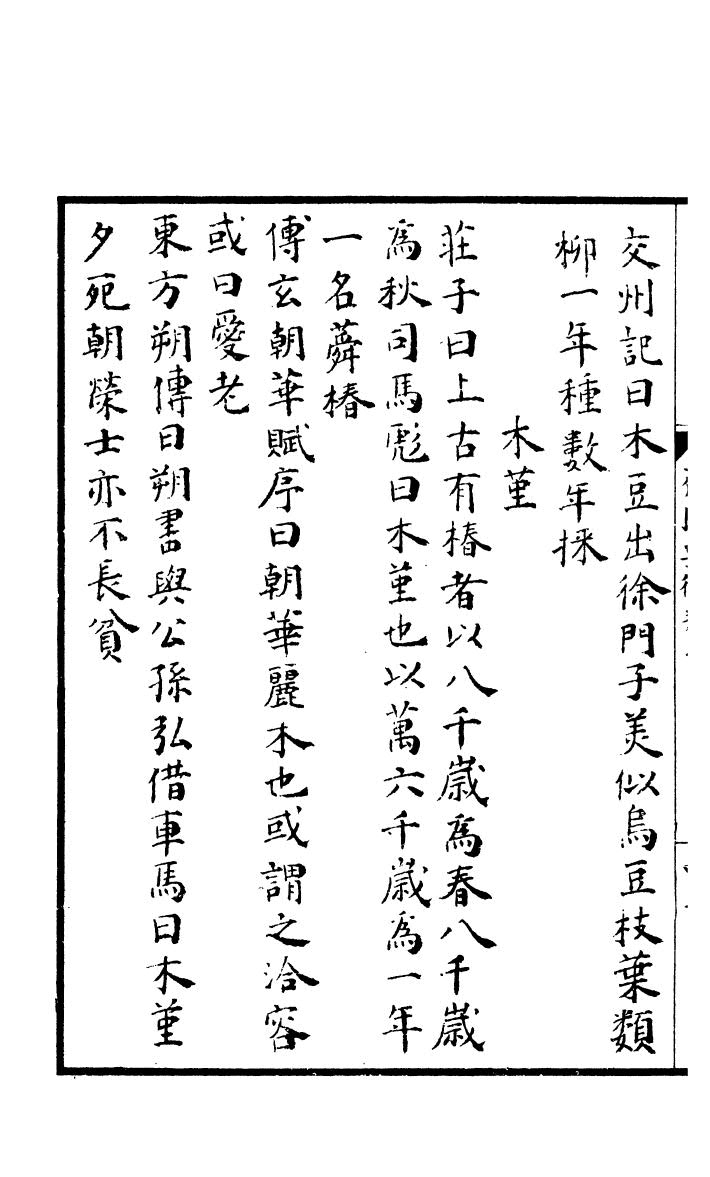 交州記曰木豆出徐門子美似烏豆枝葉類
柳一年種數年採
木菫
莊子曰上古有椿者以八千歲爲春八千歲
爲秋司馬彪曰木菫也以萬六千歲爲一年
一名蕣椿
傅玄朝華賦序曰朝華麗木也或謂之洽容
或曰愛老
東方朔傳曰朔書與公孫弘借車馬曰木菫
夕死朝榮士亦不長貧